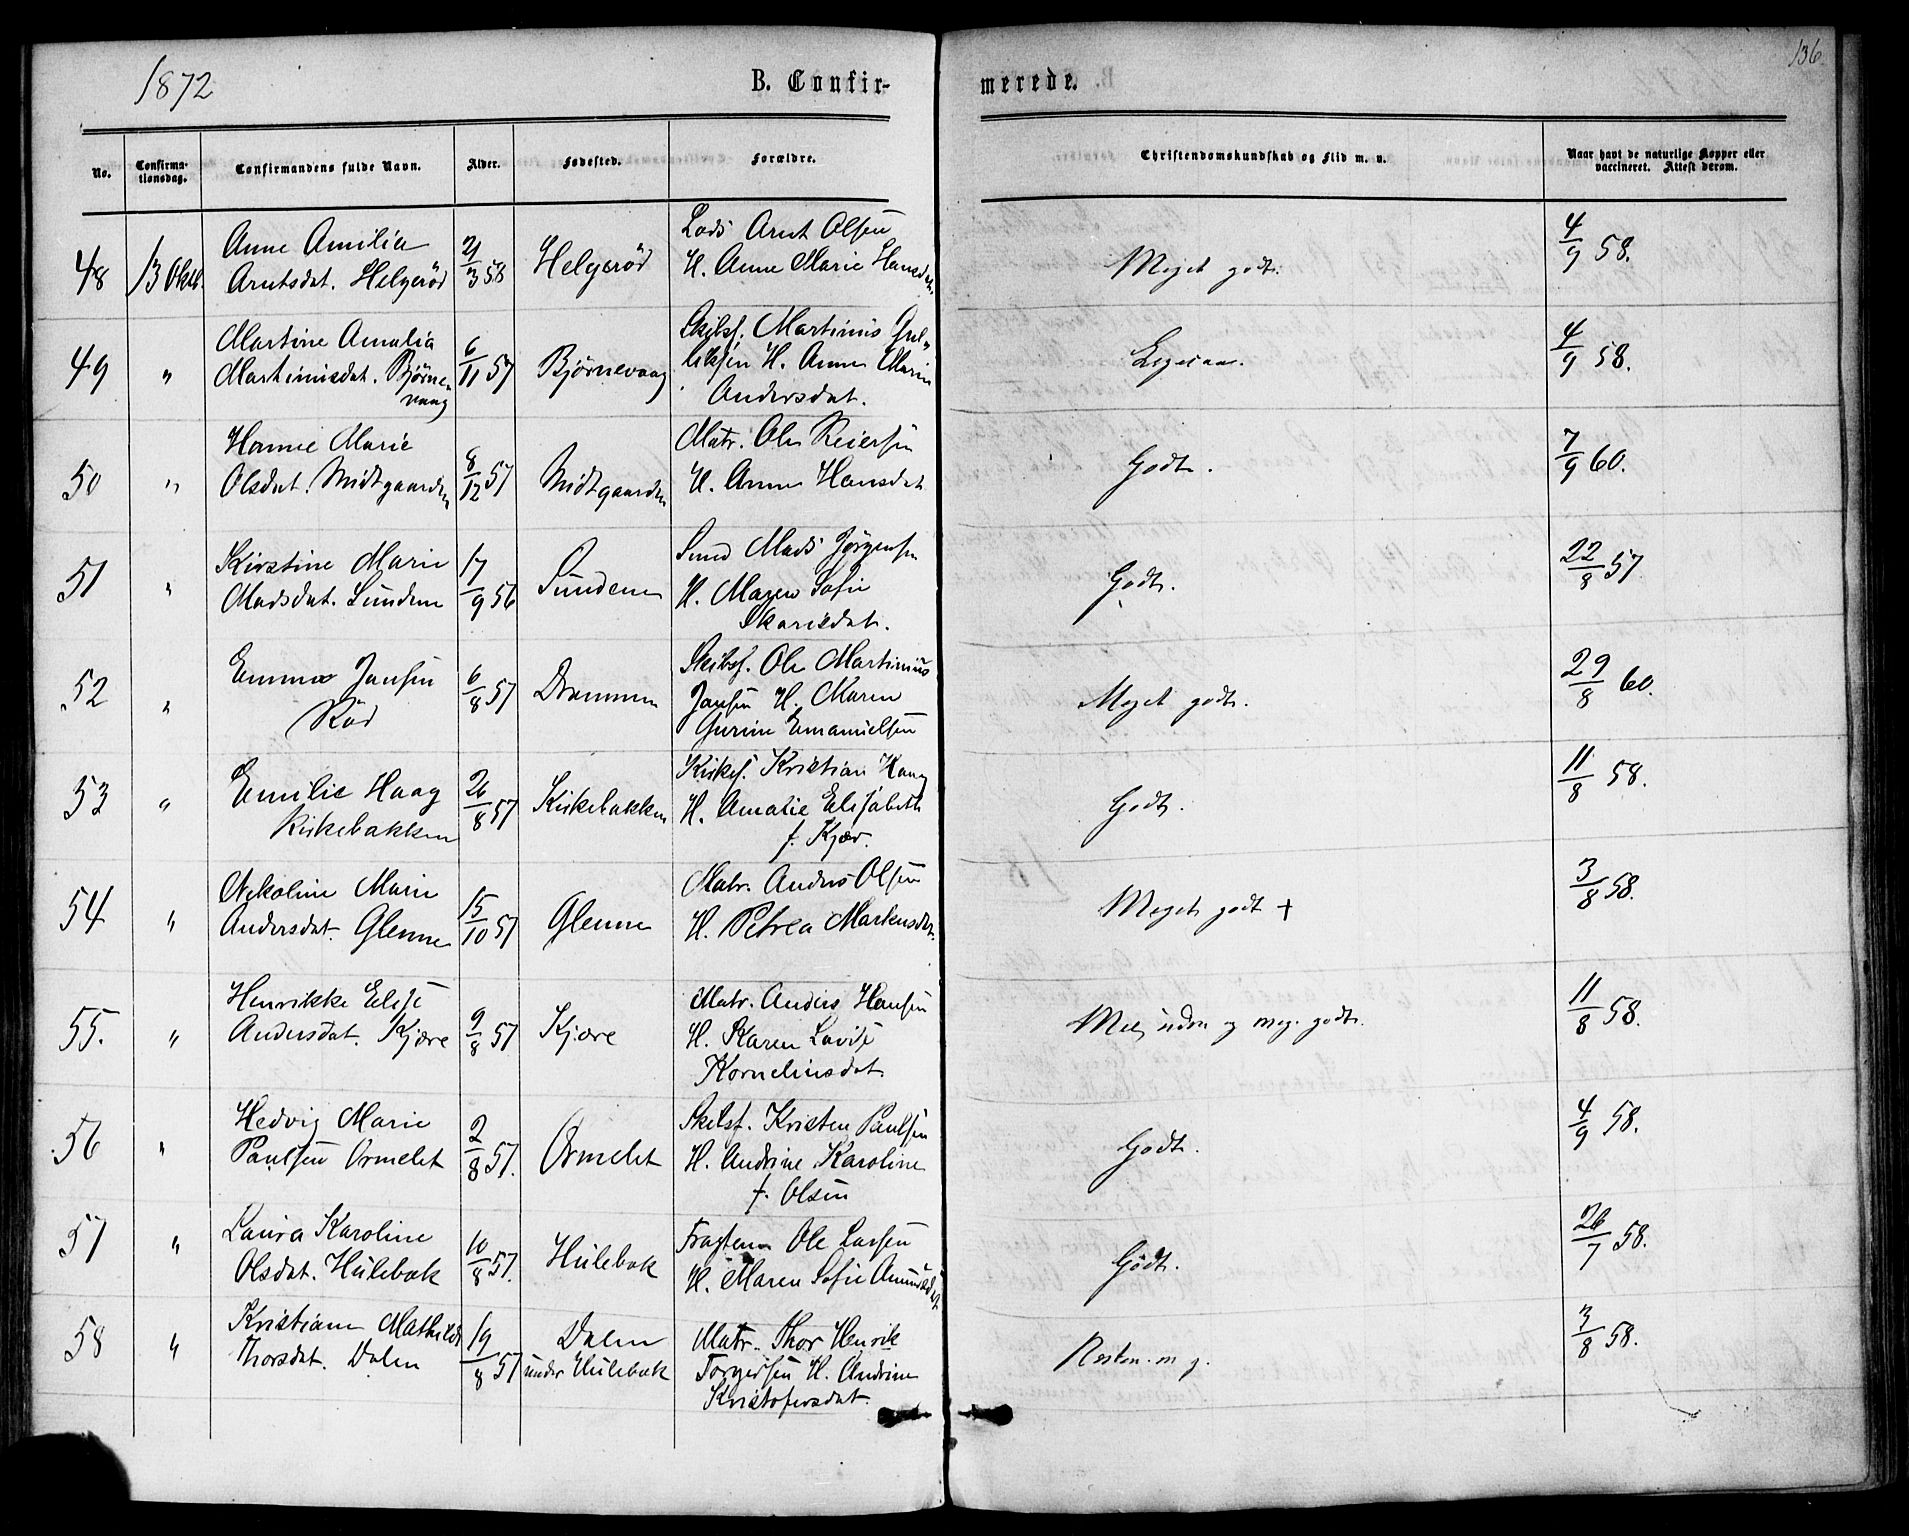 1872
B. Confir-
merede.
136
No.
Confirma-
tionsdag.
Confirmandens fulde Navn.
Alder.
Fødested.
Forældre.
Christendomskundskab og Flid m. v.
Naar havt de naturlige Kopper eller
vaccineret. Attest derom.
48 13 Oktb. Anne Amilia
Arntsdat. Helgerød
21/3 58 Helgerød
Lods Arnt Olsen
H. Anne Marie Hansdat.
Meget godt.
4/9 58.
49 " Martine Amalia
Martinusdat. Bjørne-
vaag
6/11 57 Bjørnevaag
Skibsf. Martinius Gul-
liksen H. Anne Marie
Andersdat.
Ligesaa.
4/9 58.
50 " Hanne Marie
Olsdat. Midtgaarden
8/12 57 Midtgaarden
Matr. Ole Reiersen
H. Anne Hansdat
Godt.
7/9 60.
51 " Kirstine Marie
Madsdat. Sundene
17/9 56 Sundene
Smed Mads Jørgensen
H. Maren Sofie
Godt.
22/8 57.
52 " Emma Jansen
Rød
6/8 57 Drammen
Skibsf. Ole Martinius
Jansen H. Maren
Gurine Emanuelsen
Meget godt.
29/8 60.
53 " Emilie Haag
Kirkebakken
26/8 57 Kirkebakken
Kirkes. Kristian Haag
H. Amalie Elisabeth
f. Kjær.
Godt.
11/8 58.
54 " Nikoline Marie
Andersdat. Glenne
15/10 57 Glenne
Matr. Anders Olsen
H. Petrea Martensdat.
Meget godt +
3/8 58.
55. " Henrikke Elise
Andersdat. Kjære
9/8 57 Kjære
Matr. Anders Hansen
H. Karen Lovise
Korneliusdat.
og meg. godt.
11/8 58.
56 " Hedvig Marie
Paulsen Ormelet
2/8 57. Ormelet
Skibsf. Kristen Paulsen
H. Andrine Karoline
f. Olsen
Godt.
4/9 58.
57 " Laura Karoline
Olsdat. Hulebak
10/8 57. Hulebak
Ole Larsen
H. Maren Sofie Amundsdat
Godt.
26/7 58.
58 " Kristiane Mathilde
Thorsdat. Dalen
19/8 57 Dalen
under Hulebak
Matr. Thor Henrik
Torgersen H. Andrine
Kristofersdat.
Næsten m g.
3/8 58.